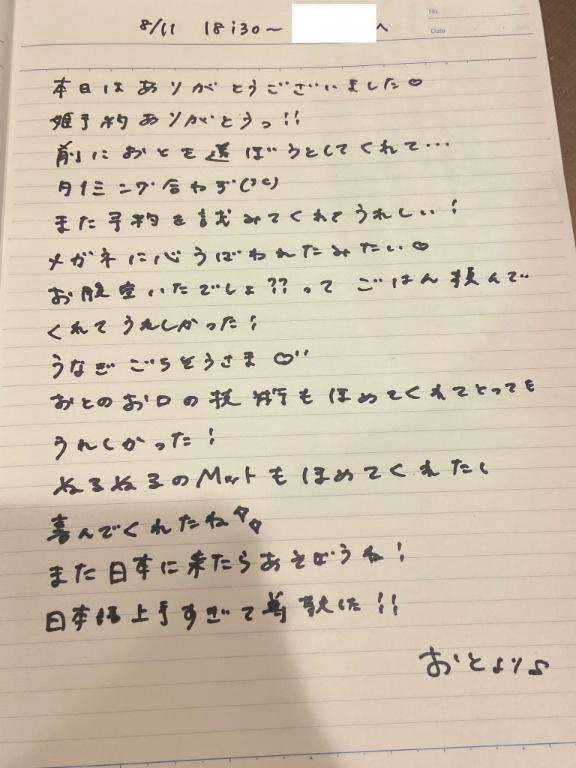 8/11 18:30～ へ
No.
Date
本日はありがとうございました♡
姫予約ありがとうっ!!
前におとを選ぼうとしてくれて…
タイミング合わず(>_<)
また予約を試みてくれてうれしい!
メガネに心うばわれたみたい♡
お腹空いたでしょ??って ごはん頼んで
くれてうれしかった!
うなぎごちそうさま♡
おとのお口の技術もほめてくれてとっても
うれしかった!
ぬるぬるのMatもほめてくれたし
喜んでくれたね
また日本に来たらあそぼうね!
日本語上手すぎて尊敬した!!
おとより